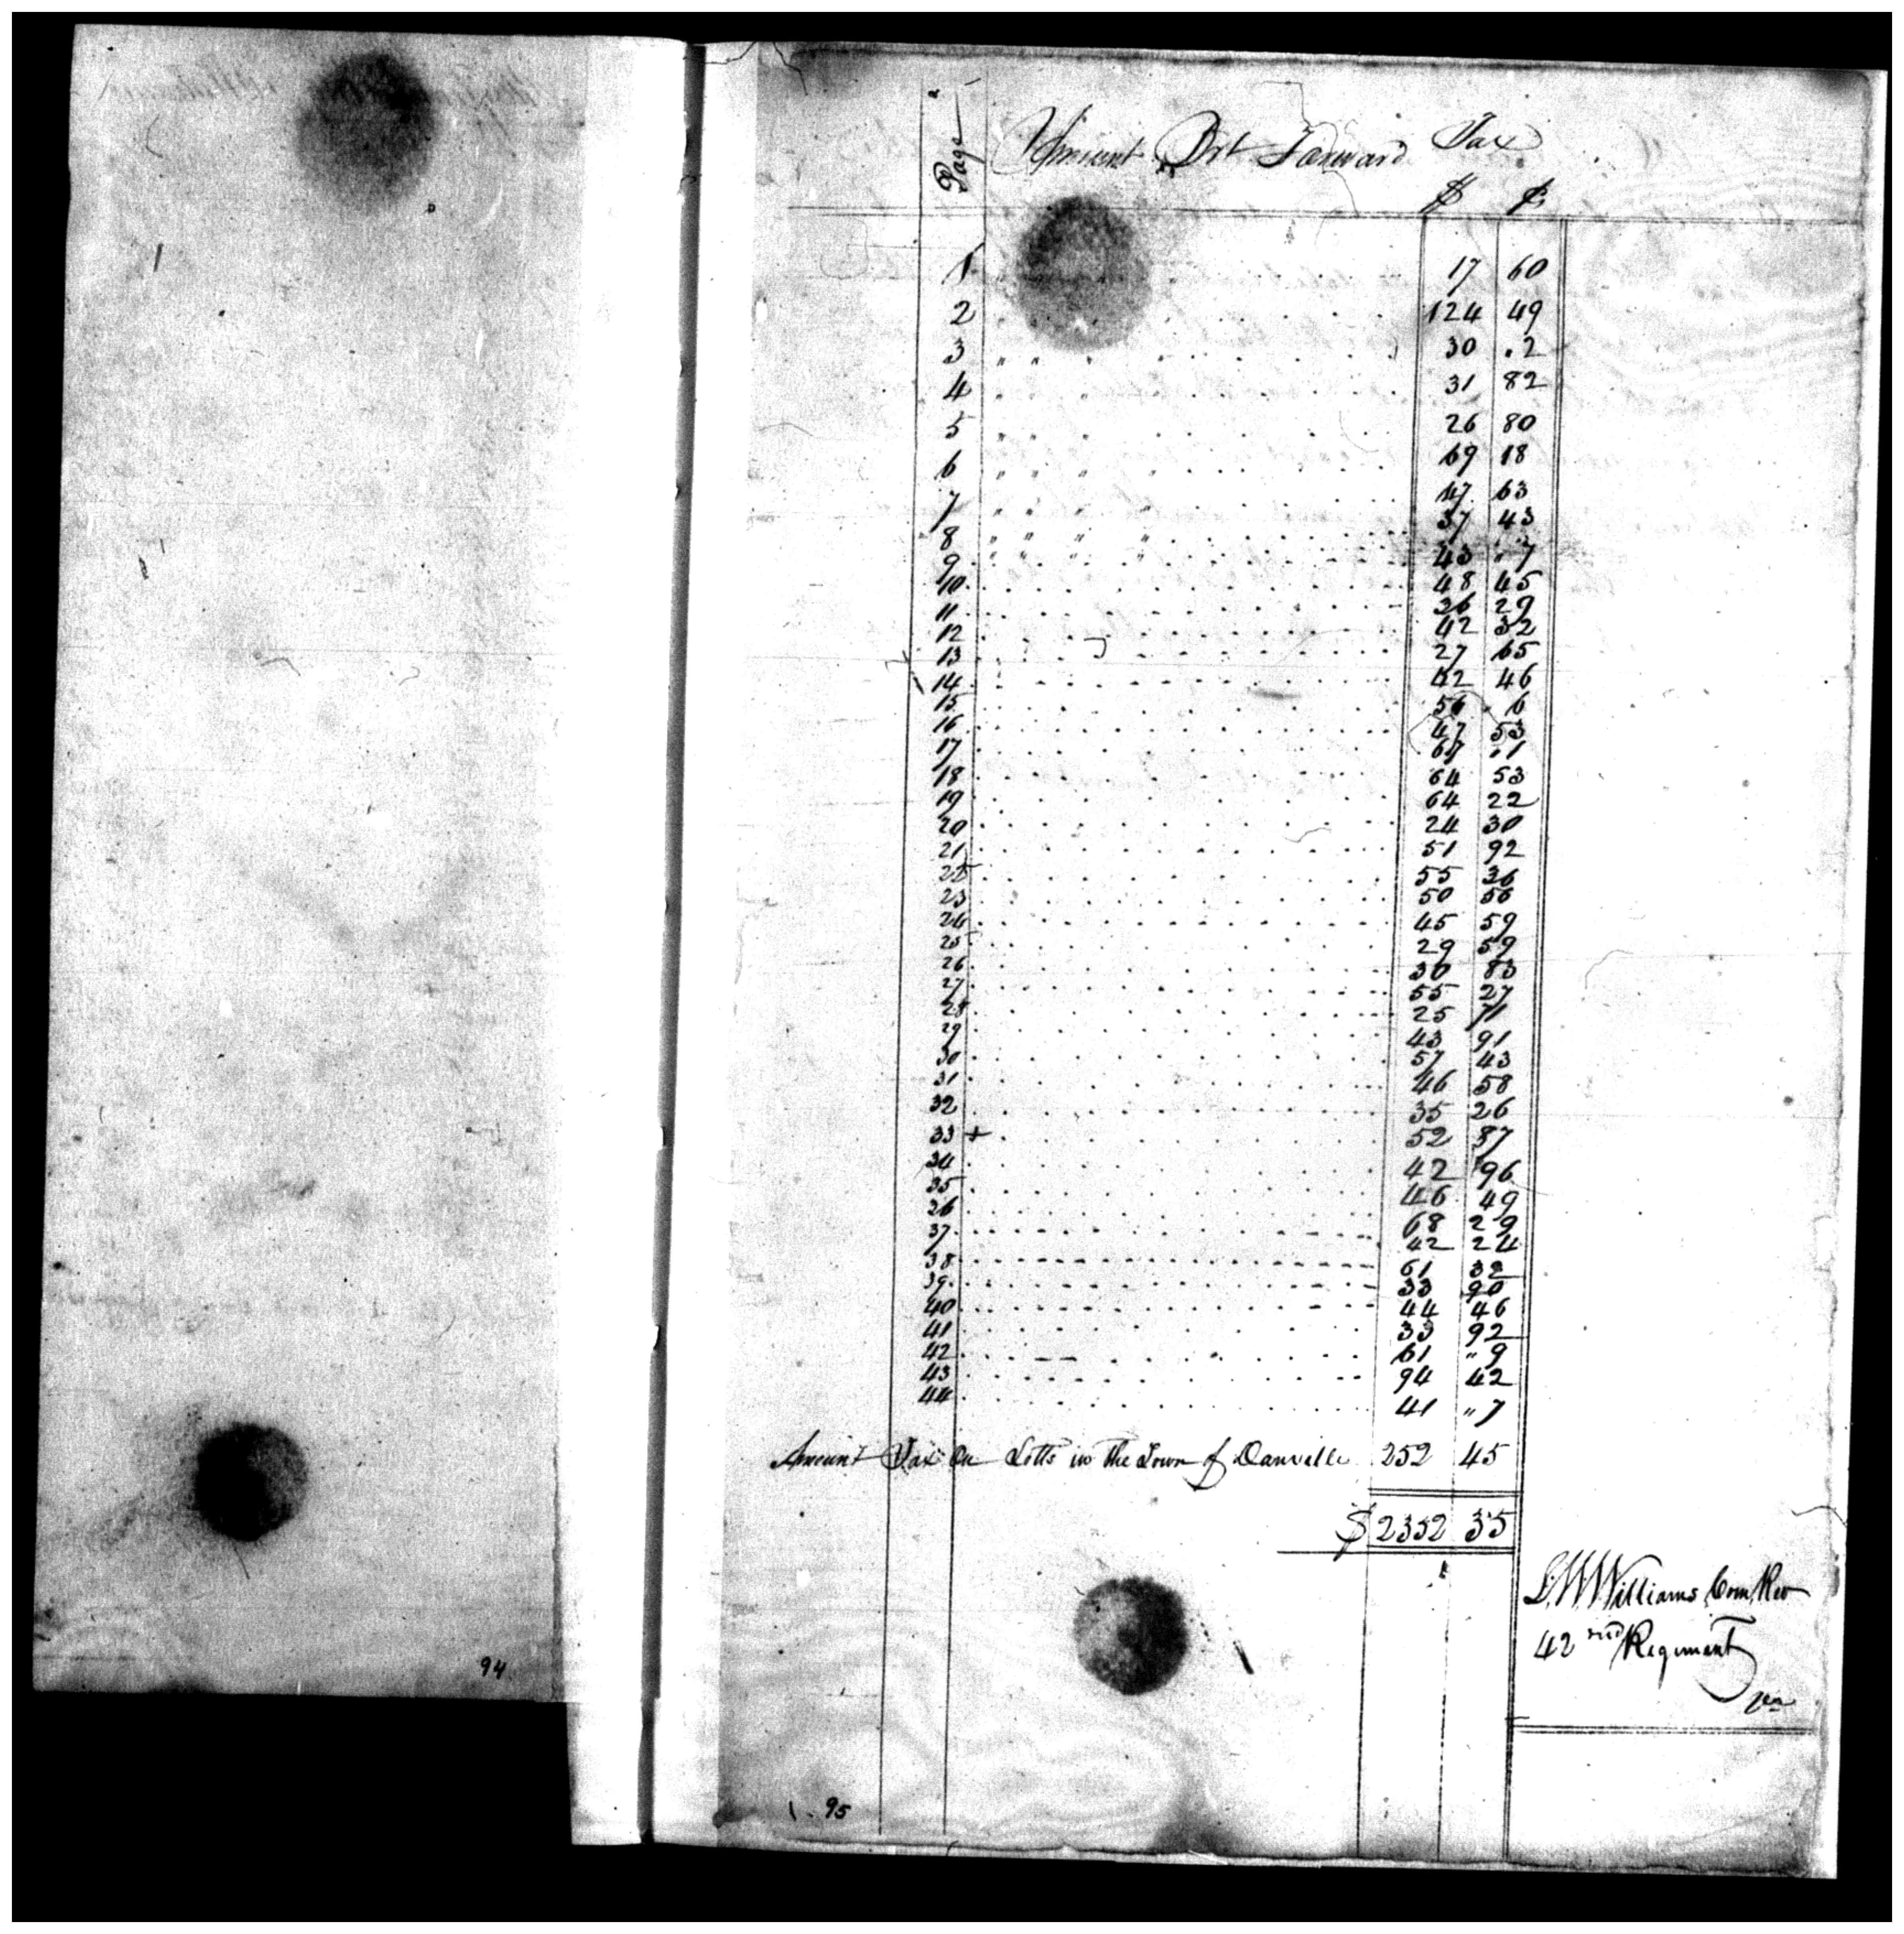 Page Amount Brt Forward Tax
$ ¢
1 17 60
2 124 49
3 30 .2
4 31 82
5 26 80
6 69 18
7 47 63
8 37 43
9 43 " 7
10 48 45
11 36 29
12 42 32
13 27 65
14 42 46
15 56 . 6
16 47 53
17 67 .1
18 64 53
19 64 22
20 24 30
21 51 92
22 55 36
23 50 56
24 45 59
25 29 59
26 30 83
27 55 27
28 25 71
29 43 91
30 57 43
31 46 58
32 35 26
33 + 52 87
34 42 96
35 46 49
36 68 29
37 42 24
38 61 32
39 33 90
40 44 46
41 33 92
42 61 " 9
43 94 42
44 41 " 7
Amount Tax On Lotts in the Town of Danville 252 45
$ 2352 35
Williams Com Rev
42 nd Regiment
94
95